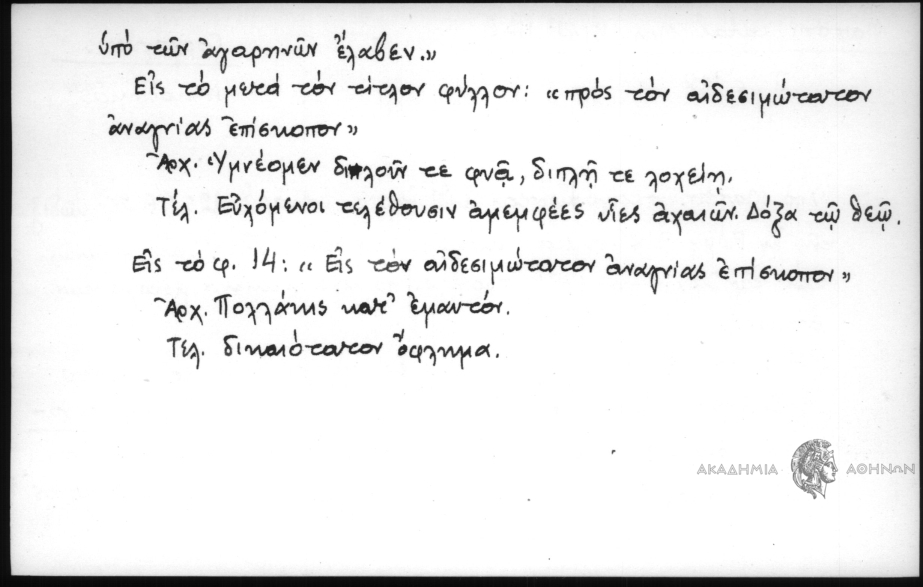 ὑπό τῶν ἀγαρηνῶν ἔλαβεν.»
Εἰς τό μετά τόν τίτλον φύλλον: «πρός τόν αἰδεσιμώτατον
ἀναγνίας ἐπίσκοπον»
Ἀρχ. Ὑμνέομεν διπλοῦν τε φυᾷ, διπλῇ τε λοχείῃ.
Τέλ. Εὐχόμενοι τελέθουσιν ἀμεμφέες υἷες ἀχαιῶν. Δόξα τῷ θεῷ.
Εἰς τό φ. 14: «Εἰς τόν αἰδεσιμώτατον ἀναγνίας ἐπίσκοπον»
Ἀρχ. Πολλάκις κατ' ἐμαυτόν.
Τέλ. δικαιότατον ὄφλημα.
ΑΚΑΔΗΜΙΑ ΑΘΗΝΩΝ